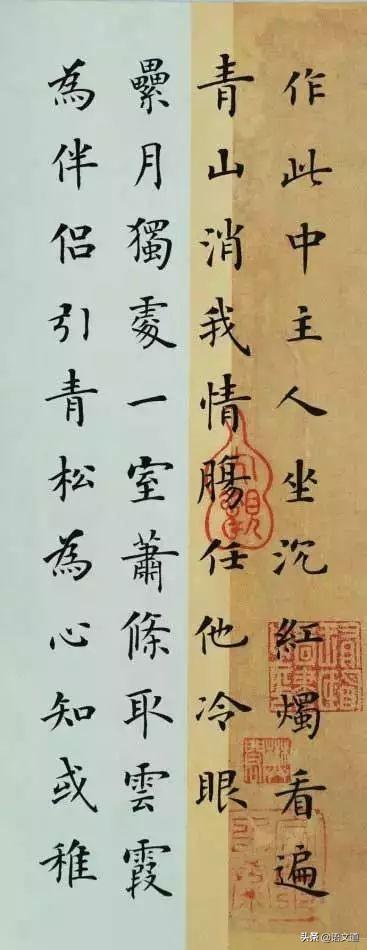 作此中主人坐沉紅燭看遍
青山消我情腸任他冷眼
纍月獨處一室蕭條取雲霞
為伴侣引青松為心知或稚
头条 @语文道